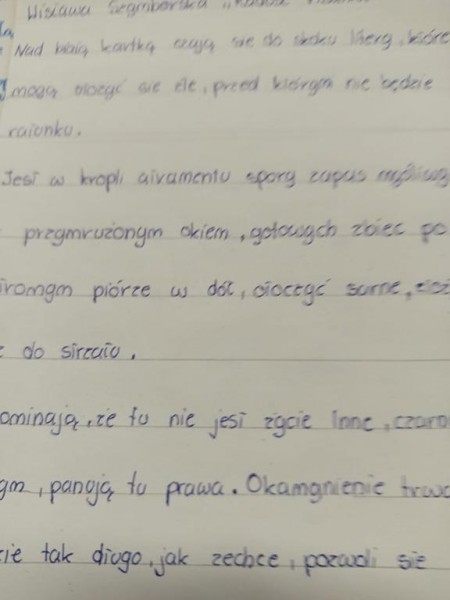 Wisława Szymborska „Radość
Nad białą kartką czają się do skoku litery, które
mogą ułożyć się źle, przed którym nie będzie
ratunku.
Jest w kropli atramentu spory zapas myśliwy
przymrużonym okiem, gotowych zbiec po
stromym piórze w dół, otoczyć sarnę, złoż
do strzału.
ominają, że tu nie jest życie inne, czarno
ym, panują tu prawa. Okamgnienie trwa
cie tak długo, jak zechce, pozwoli się